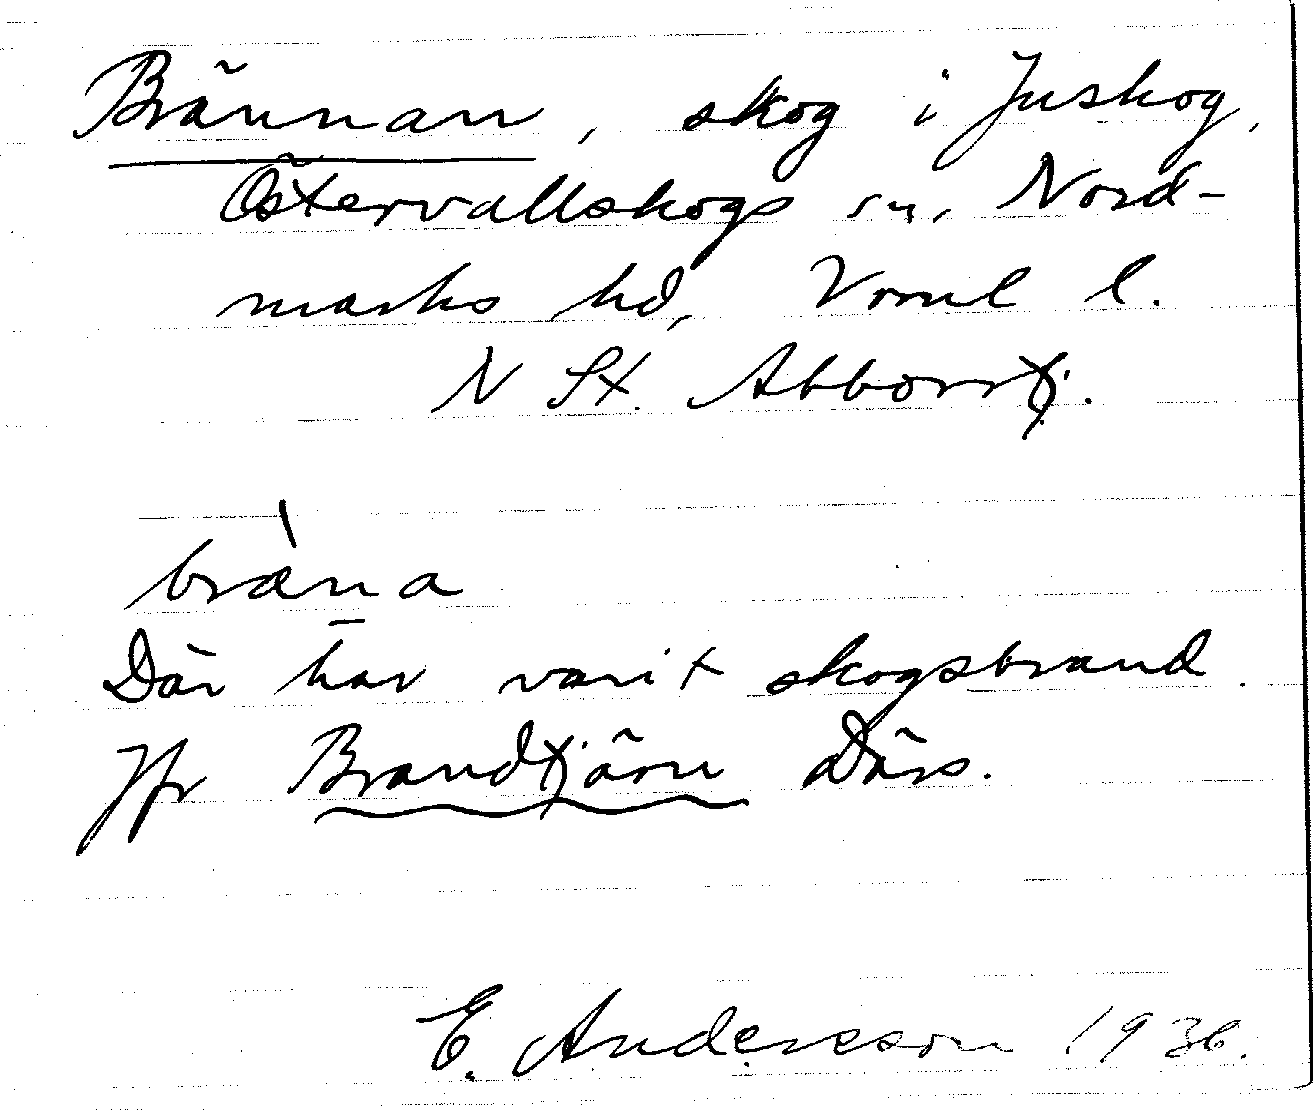 Brännan, skog i Juskog,
Östervallskogs sn, Nord-
marks hd, Vrml l.
N St. Abborrtj.
bræ̀n̠a
Där har varit skogsbrand.
Jfr Brandtjärn därs.
E. Andersson 1936.